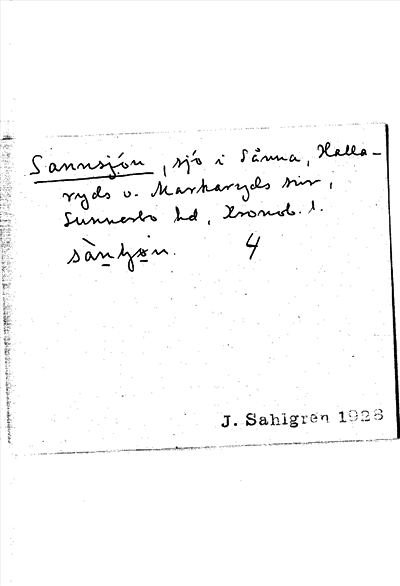 Sannsjön, sjö i Sånna, Halla-
ryds o. Markaryds snr,
Sunnerbo hd, Kronob. l.
sàntjøn. 4
J. Sahlgren 1928